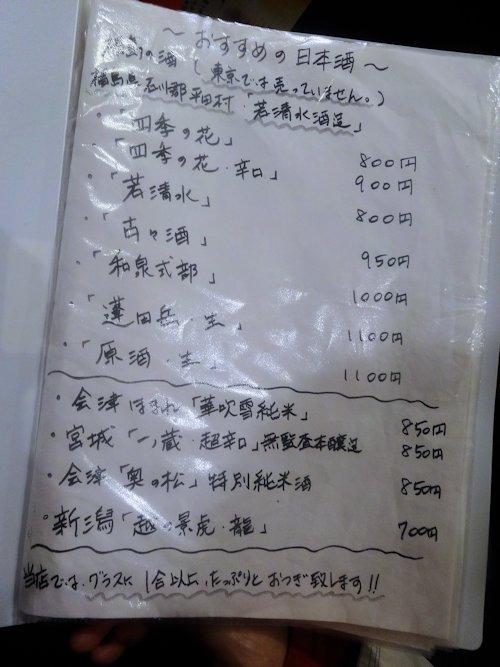 ～おすすめの日本酒～
の酒(東京では売っていません。)
福島県石川郡平田村「若清水酒造」
・「四季の花」 800円
「四季の花・辛口」 900円
・「若清水」 800円
・「古々酒」 950円
・「和泉式部」 1000円
・「蓬田岳・生」 1100円
・「原酒・生」 1100円
・会津ほまれ「華吹雪純米」 850円
・宮城「一ノ蔵・超辛口」無監査本醸造 850円
・会津「奥の松」特別純米酒 850円
・新潟「越の景虎・龍」 700円
当店では、グラスに1合以上、たっぷりとおつぎ致します!!